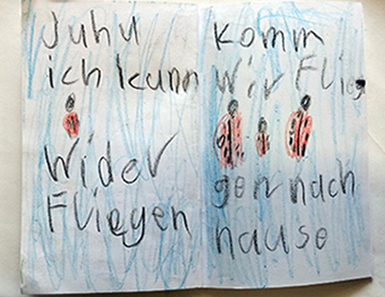 Juhu
ich kann
wider
Fliegen
komm
wir Flie
gen nach
hause